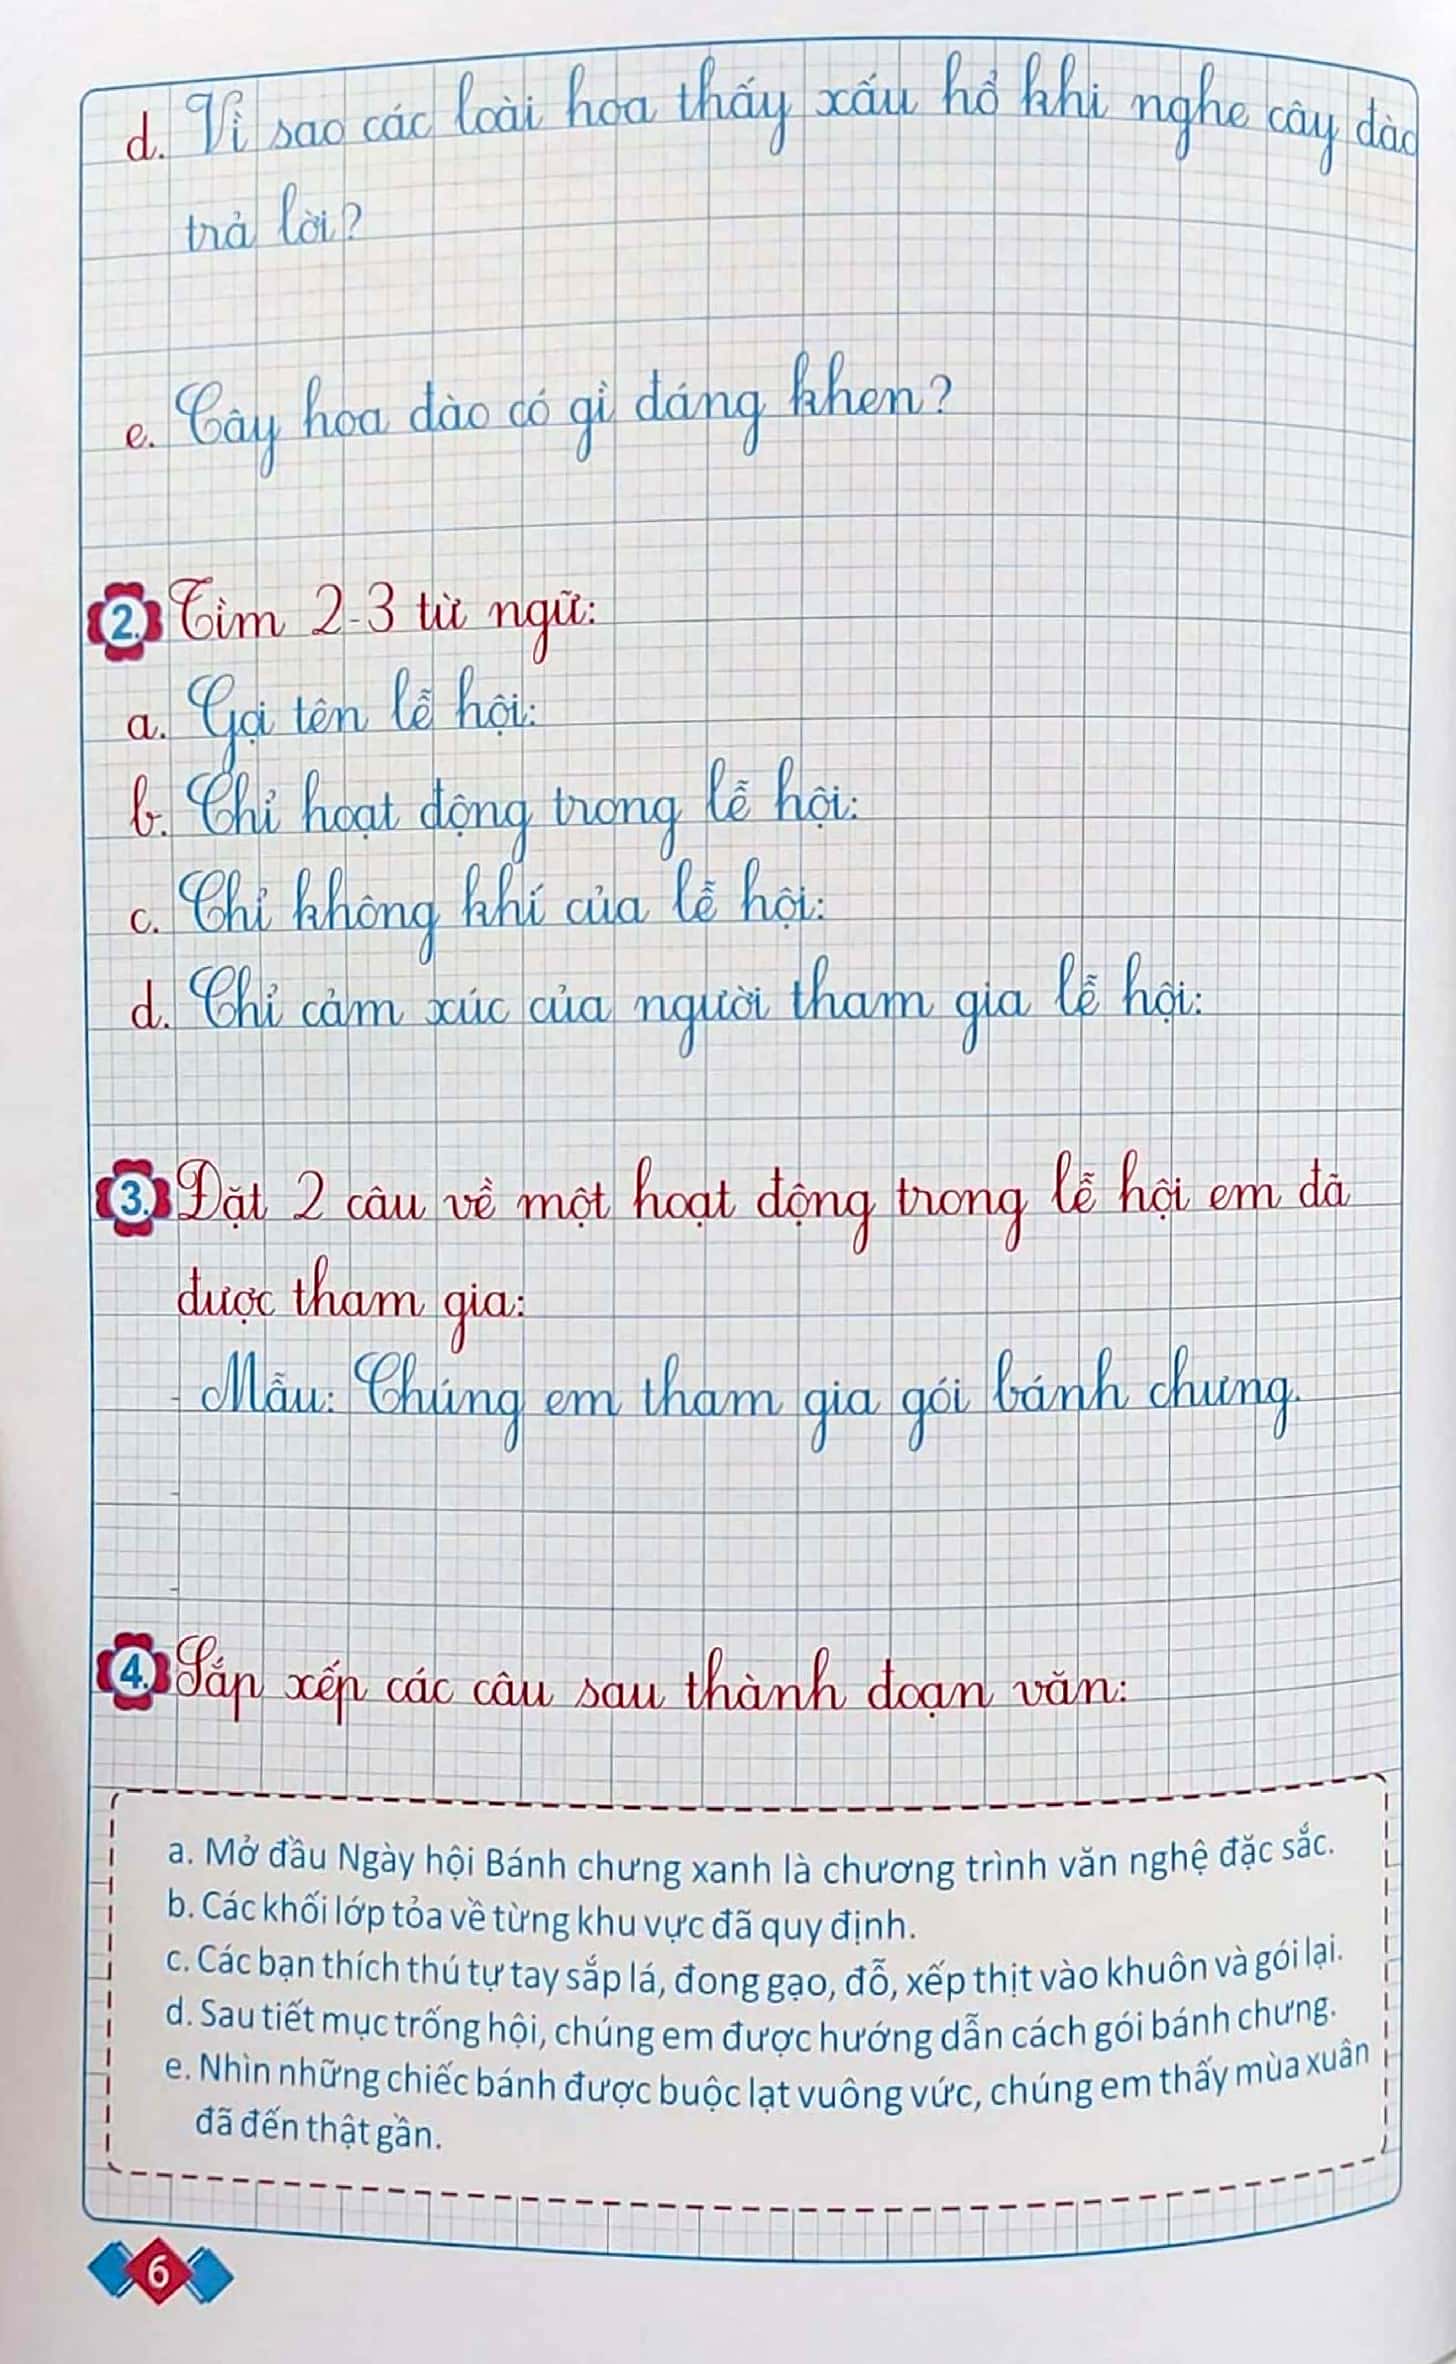 d. Vì sao các loài hoa thấy xấu hổ khi nghe cây đào
trả lời?
e. Cây hoa đào có gì đáng khen?
2. Tìm 2-3 từ ngữ:
a. Gọi tên lễ hội:
b. Chỉ hoạt động trong lễ hội:
c. Chỉ không khí của lễ hội:
d. Chỉ cảm xúc của người tham gia lễ hội:
3. Đặt 2 câu về một hoạt động trong lễ hội em đã
được tham gia:
- Mẫu: Chúng em tham gia gói bánh chưng.
-
-
4. Sắp xếp các câu sau thành đoạn văn:
a. Mở đầu Ngày hội Bánh chưng xanh là chương trình văn nghệ đặc sắc.
b. Các khối lớp tỏa về từng khu vực đã quy định.
c. Các bạn thích thú tự tay sắp lá, đong gạo, đỗ, xếp thịt vào khuôn và gói lại.
d. Sau tiết mục trống hội, chúng em được hướng dẫn cách gói bánh chưng.
e. Nhìn những chiếc bánh được buộc lạt vuông vức, chúng em thấy mùa xuân
đã đến thật gần.
6